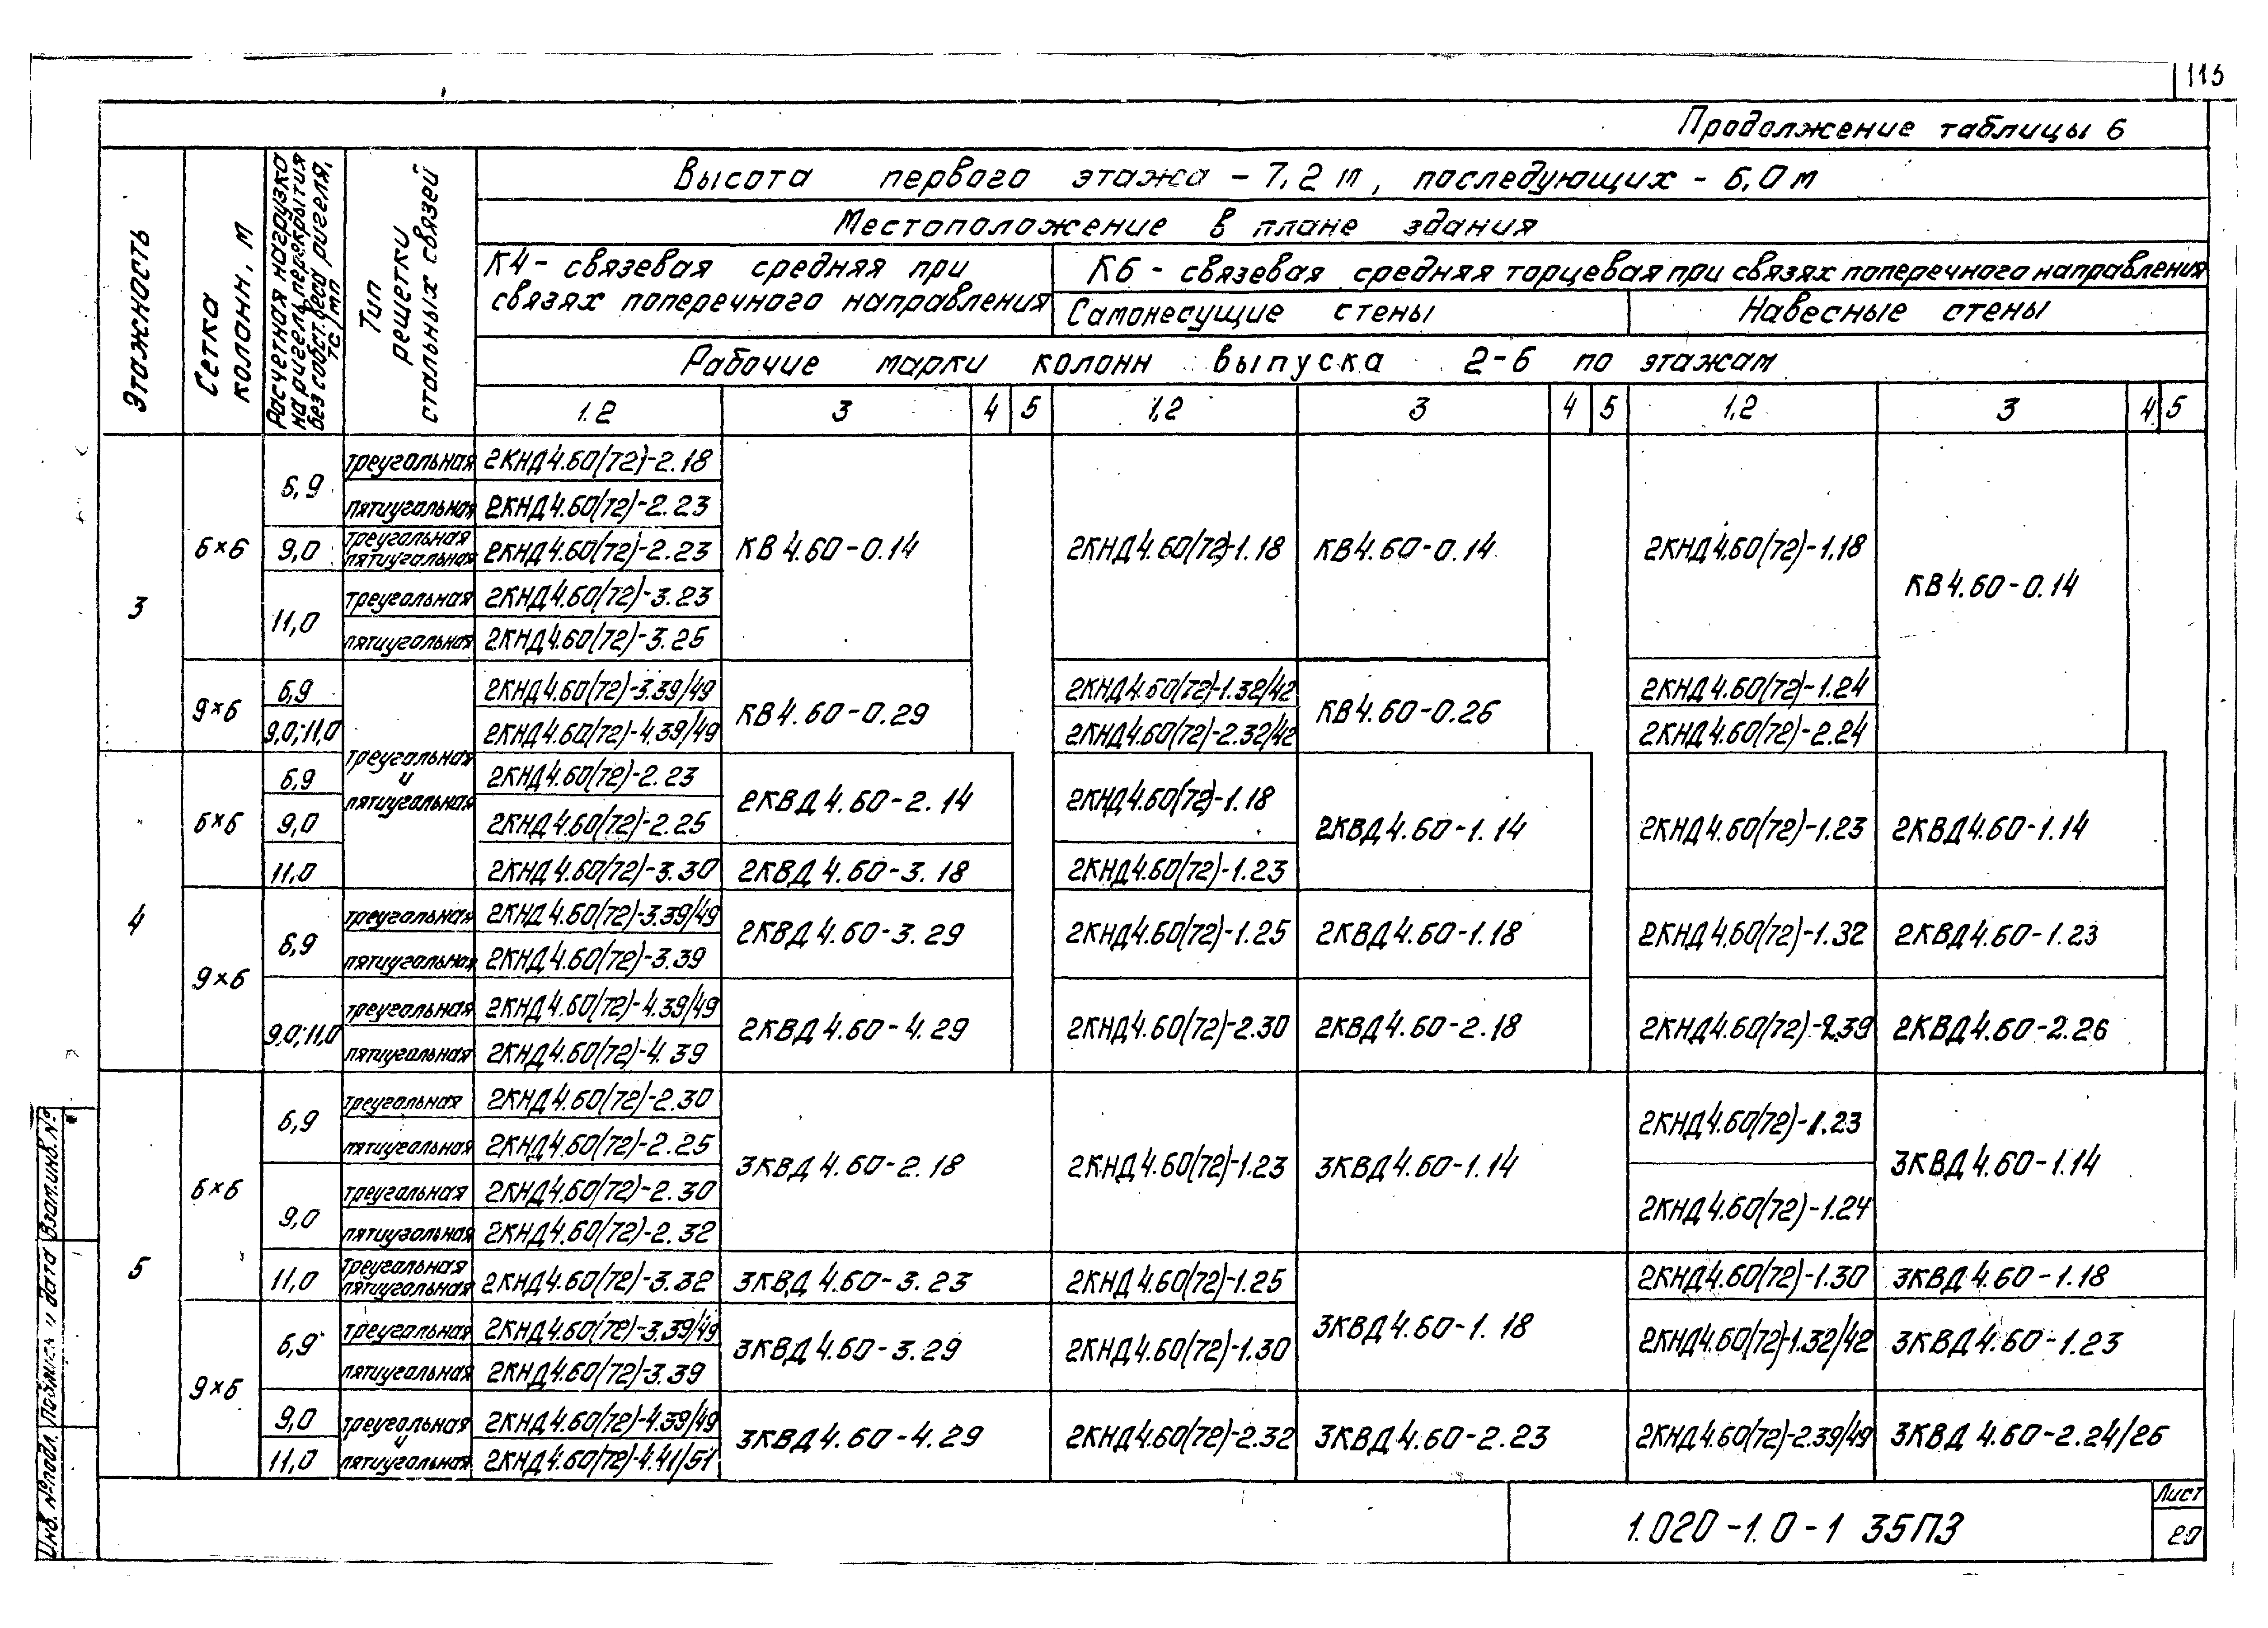 113
Продолжение таблицы 6
Этажность
Сетка колонн, м
Расчетная нагрузка на ригель перекрытия без собст. веса ригеля, тс/мп
Тип решетки стальных связей
Высота первого этажа - 7,2 м, последующих - 6,0 м
Местоположение в плане здания
К4 - связевая средняя при связях поперечного направления
К6 - связевая средняя торцевая при связях поперечного направления
Самонесущие стены
Навесные стены
Рабочие марки колонн выпуска 2-6 по этажам
1.2 3 4 5 1,2 3 4 5 1,2 3 4 5
3
6×6
6,9 треугольная 2КНД4.60(72)-2.18
пятиугольная 2КНД4.60(72)-2.23
9,0 треугольная пятиугольная 2КНД4.60(72)-2.23 КВ4.60-0.14 2КНД4.60(72)-1.18 КВ4.60-0.14 2КНД4.60(72)-1.18
11,0 треугольная 2КНД4.60(72)-3.23 КВ4.60-0.14
пятиугольная 2КНД4.60(72)-3.25
9×6
6,9 2КНД4.60(72)-3.39/49 КВ4.60-0.29 2КНД4.60(72)-1.32/42 КВ4.60-0.26 2КНД4.60(72)-1.24
9,0;11,0 2КНД4.60(72)-4.39/49 2КНД4.60(72)-2.32/42 2КНД4.60(72)-2.24
треугольная и пятиугольная
4
6×6
6,9 2КНД4.60(72)-2.23 2КВД4.60-2.14 2КНД4.60(72)-1.18
9,0 2КНД4.60(72)-2.25 2КВД4.60-1.14 2КНД4.60(72)-1.23 2КВД4.60-1.14
11,0 2КНД4.60(72)-3.30 2КВД4.60-3.18 2КНД4.60(72)-1.23
9×6
6,9 треугольная 2КНД4.60(72)-3.39/49 2КВД4.60-3.29 2КНД4.60(72)-1.25 2КВД4.60-1.18 2КНД4.60(72)-1.32 2КВД4.60-1.23
пятиугольная 2КНД4.60(72)-3.39
9,0;11,0 треугольная 2КНД4.60(72)-4.39/49 2КВД4.60-4.29 2КНД4.60(72)-2.30 2КВД4.60-2.18 2КНД4.60(72)-2.39 2КВД4.60-2.26
пятиугольная 2КНД4.60(72)-4.39
5
6×6
6,9 треугольная 2КНД4.60(72)-2.30 2КНД4.60(72)-1.23
пятиугольная 2КНД4.60(72)-2.25 3КВД4.60-2.18 2КНД4.60(72)-1.23 3КВД4.60-1.14 3КВД4.60-1.14
9,0 треугольная 2КНД4.60(72)-2.30 2КНД4.60(72)-1.24
пятиугольная 2КНД4.60(72)-2.32
11,0 треугольная пятиугольная 2КНД4.60(72)-3.32 3КВД4.60-3.23 2КНД4.60(72)-1.25 3КВД4.60-1.18 2КНД4.60(72)-1.30 3КВД4.60-1.18
9×6
6,9 треугольная 2КНД4.60(72)-3.39/49 3КВД4.60-3.29 2КНД4.60(72)-1.30 2КНД4.60(72)-1.32/42 3КВД4.60-1.23
пятиугольная 2КНД4.60(72)-3.39
9,0 треугольная и пятиугольная 2КНД4.60(72)-4.39/49 3КВД4.60-4.29 2КНД4.60(72)-2.32 3КВД4.60-2.23 2КНД4.60(72)-2.39/49 3КВД4.60-2.24/26
11,0 2КНД4.60(72)-4.41/51
1.020-1.0-1 35ПЗ
Лист
20
Инв. № подл. Подпись и дата Взам.инв.№